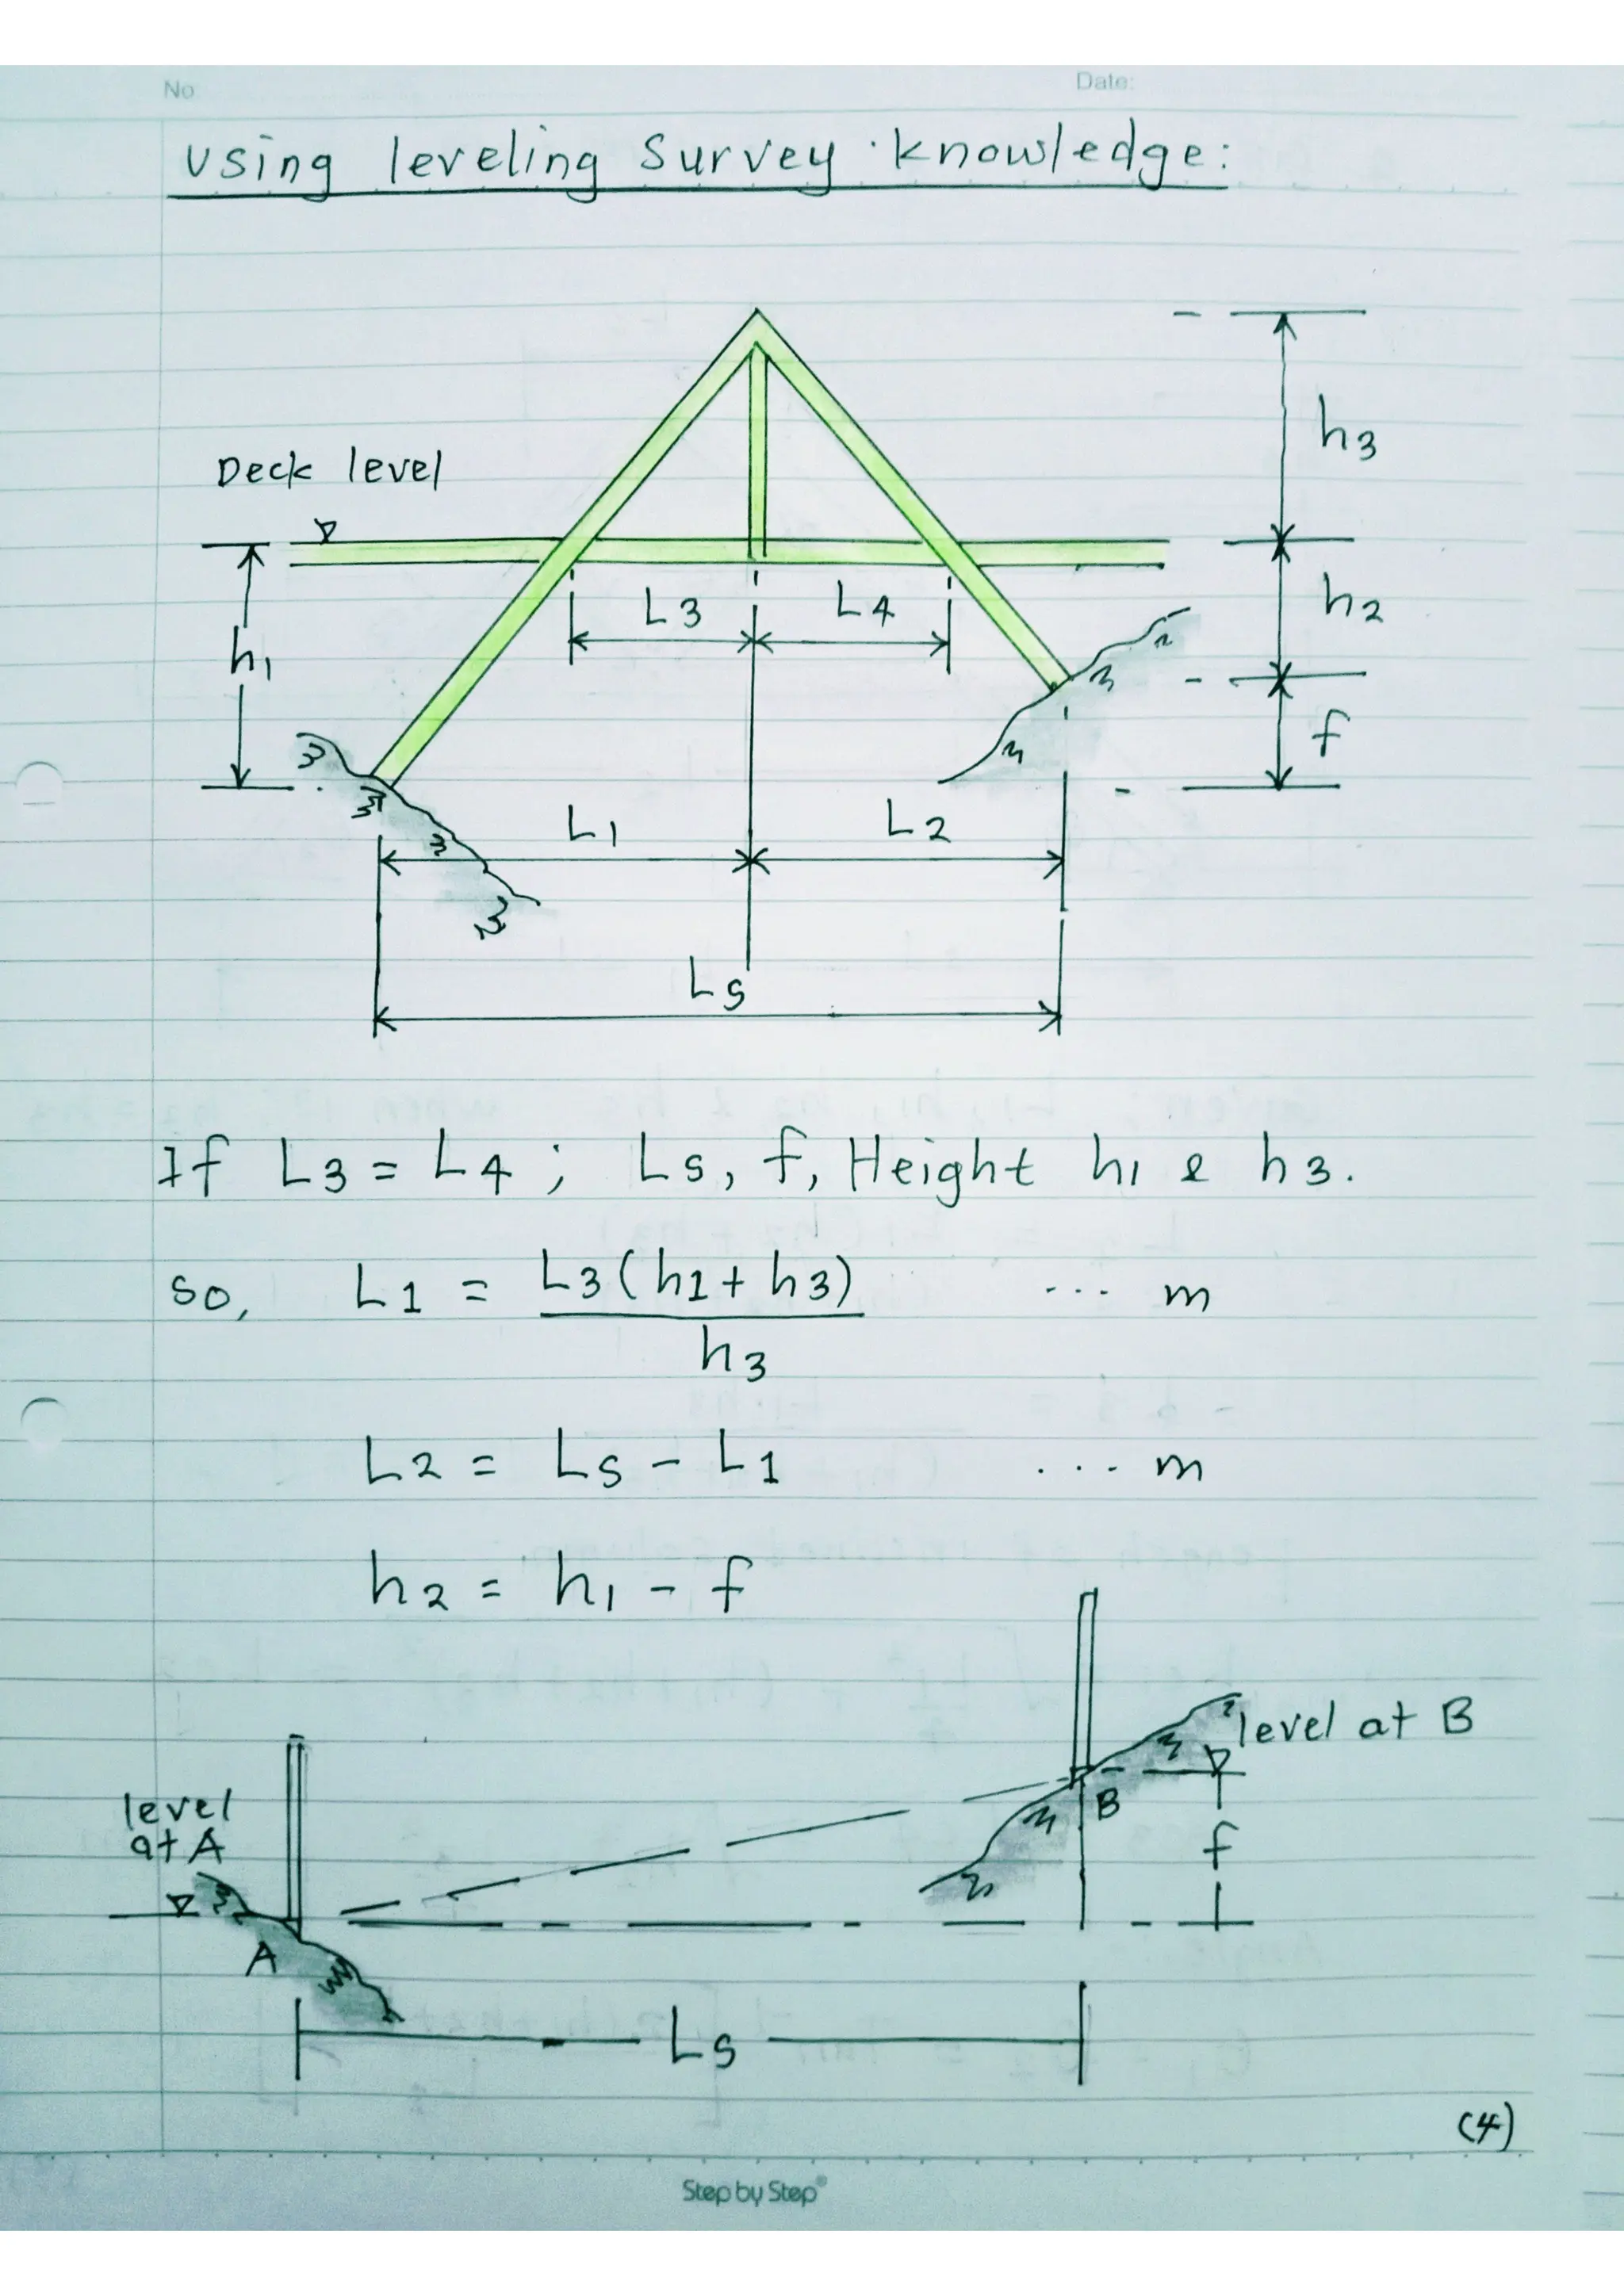 No
Date:
Using leveling Survey knowledge:
h3
Deck level
L3
L4
h2
h1
f
L1
L2
Ls
If L3 = L4 ; Ls, f, Height h1 & h3.
so, L1 = L3(h1+h3) ... m
h3
L2 = Ls - L1 ... m
h2 = h1 - f
level at B
level
at A
B
f
A
Ls
(4)
Step by Step®